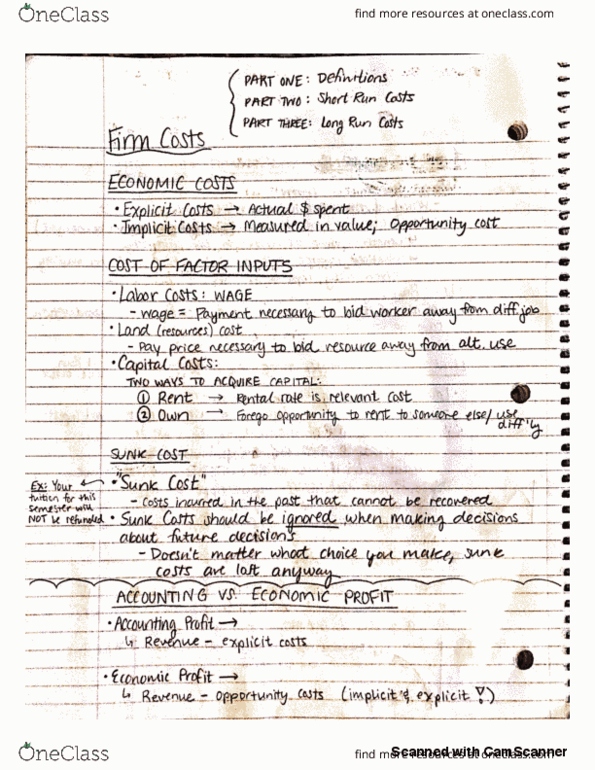 OneClass
find more resources at oneclass.com
PART ONE: Definitions
PART TWO: Short Run Costs
PART THREE: Long Run Costs
Firm Costs
ECONOMIC COSTS
• Explicit Costs → Actual $ spent
• Implicit Costs → Measured in value; Opportunity cost
COST OF FACTOR INPUTS
• Labor Costs: WAGE
- wage = Payment necessary to bid worker away from diff job
• Land (resources) cost
- Pay price necessary to bid resource away from alt. use
• Capital Costs:
TWO WAYS TO ACQUIRE CAPITAL:
① Rent → Rental rate is relevant cost
② Own → Forego opportunity to rent to someone else/ use
diff'ly
SUNK COST
• "Sunk Cost"
Ex: Your
tuition for this
semester will
NOT be refunded
- Costs incurred in the past that cannot be recovered
• Sunk Costs should be ignored when making decisions
about future decisions
- Doesn't matter what choice you make, sunk
costs are lost anyway
ACCOUNTING VS. ECONOMIC PROFIT
• Accounting Profit →
↳ Revenue - explicit costs
• Economic Profit →
↳ Revenue - Opportunity costs (implicit & explicit !)
OneClass
find more resources at oneclass.com
Scanned with CamScanner